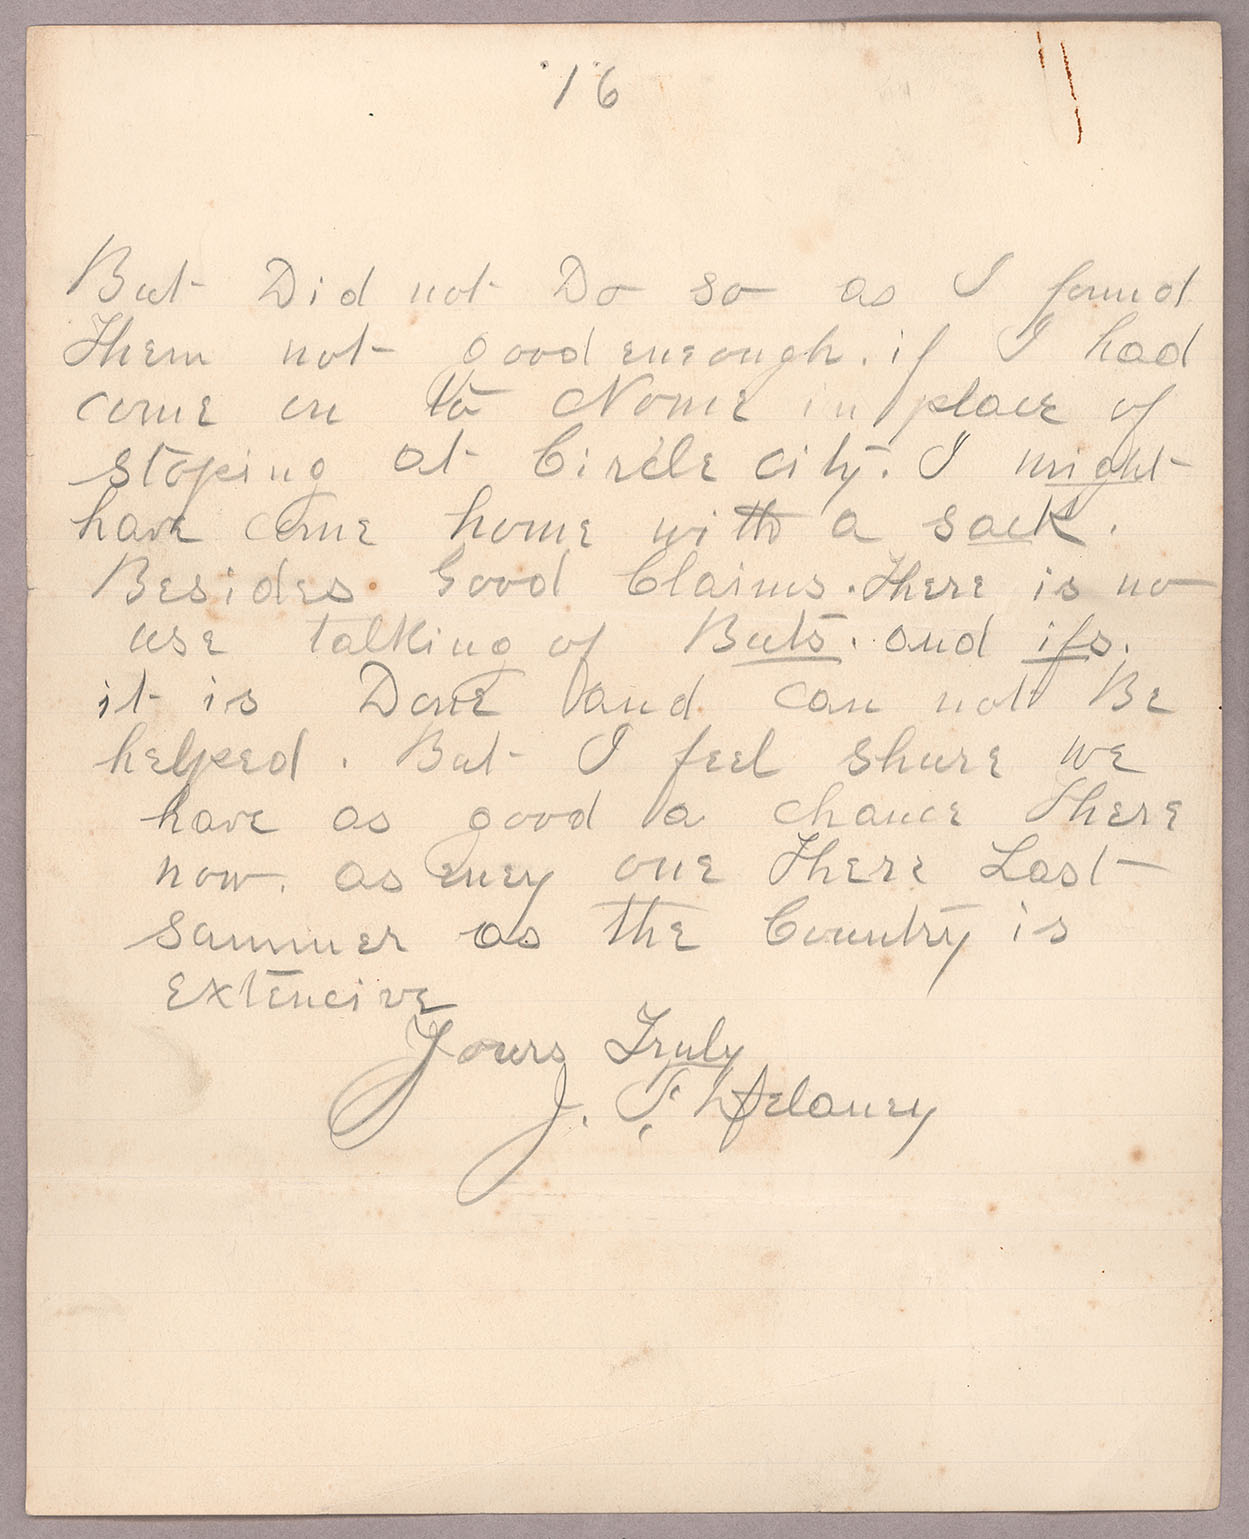 16
But Did not Do so as I found
Them not good eneough. if I had
come on to Nome in place of
stoping at Circle city. I might
have come home with a sack.
Besides Good Claims. There is no
use talking of Buts. and ifs.
it is Done and can not Be
helped. But I feel shure we
have as good a chance There
now. as eney one There Last
summer as the Country is
extencive
Yours Truly
J. F. Delaney